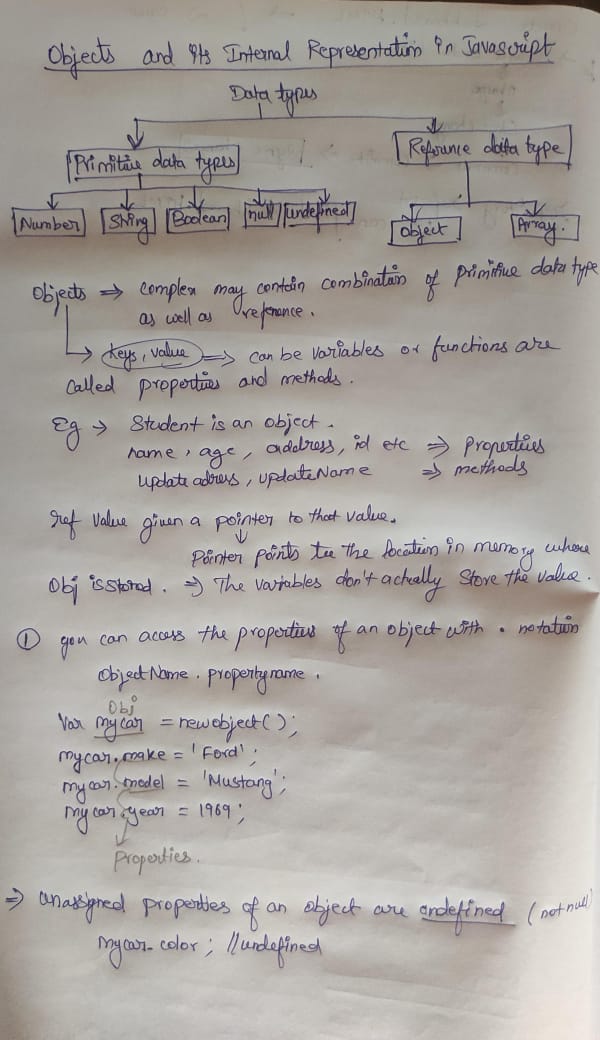 Objects and its Internal Representation in Javascript
Data types
Primitive data types
Refrence data type
Number
String
Boolean
null
undefined
object
Array.
Objects ⇒ complex may contain combination of primitive data type
as well as refrence.
↳ keys, value ⇒ can be variables or functions are
called properties and methods.
Eg → Student is an object.
name, age, address, id etc ⇒ properties
update adress, updateName ⇒ methods
ref value given a pointer to that value.
Pointer points to the location in memory where
Obj is stored. ⇒ The variables don't actually store the value.
① you can access the properties of an object with . notation
ObjectName. propertyname.
Obj
Var mycar = new object();
mycar.make = 'Ford';
mycar.model = 'Mustang';
mycar.year = 1969;
Properties.
⇒ unassigned properties of an object are undefined (not null)
mycar.color; //undefined